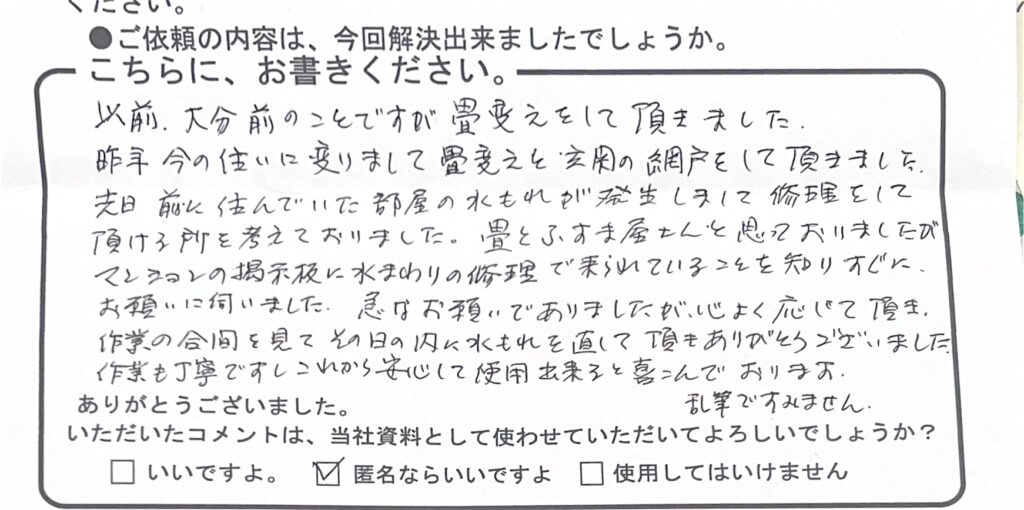 ください。
●ご依頼の内容は、今回解決出来ましたでしょうか。
こちらに、お書きください。
以前、大分前のことですが畳変えをして頂きました。
昨年今の住いに変りまして畳変えと玄関の網戸をして頂きました
先日前に住んでいた部屋の水もれが発生しまして修理をして
頂ける所を考えておりました。畳とふすま屋さんと思っておりましたが
マンションの掲示板に水まわりの修理で来られていることを知りすぐに、
お願いに伺いました。急なお願いでありましたが、心よく応じて頂き、
作業の合間を見てその日の内に水もれを直して頂きありがとうございました
作業も丁寧ですしこれから安心して使用出来ると喜こんでおります。
乱筆ですみません。
ありがとうございました。
いただいたコメントは、当社資料として使わせていただいてよろしいでしょうか？
□ いいですよ。 ☑ 匿名ならいいですよ □ 使用してはいけません